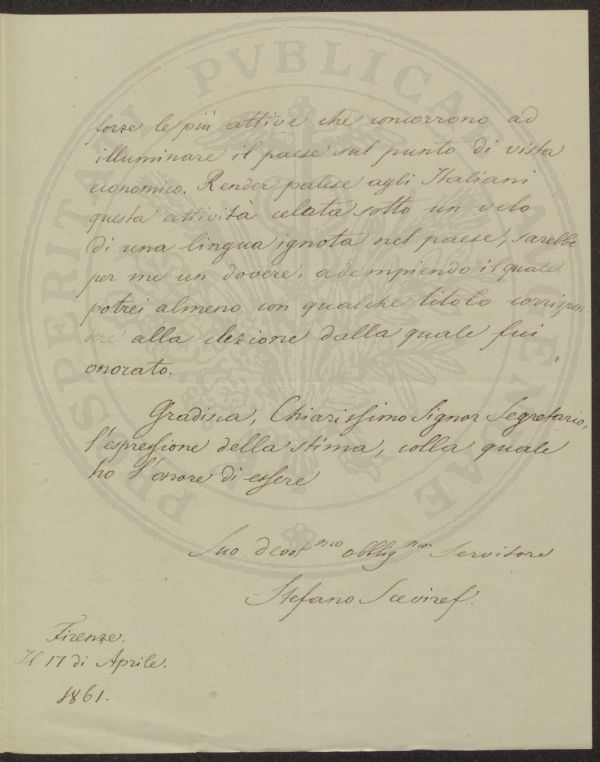 forze le più attive che concorrono ad
illuminare il paese sul punto di vista
economico. Render palese agli Italiani
questa attività celata sotto un velo
di una lingua ignota nel paese, sarebbe
per me un dovere, adempiendo il quale
potrei almeno con qualche titolo corrispon-
dere alla elezione dalla quale fui
onorato.
Gradisca, Chiarissimo Signor Segretario,
l'espressione della stima, colla quale
ho l'onore di essere
Suo devot mo obblig mo Servitore
Stefano Sceviref.
Firenze.
Il 17 di Aprile.
1861.
PUBLICAE
PROSPERITATI